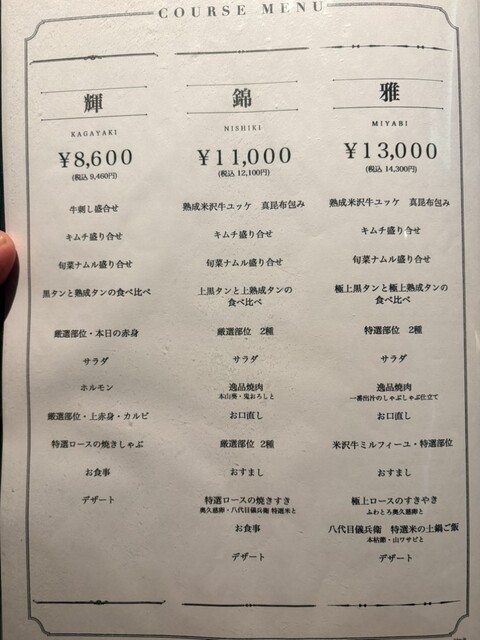 COURSE MENU
輝
KAGAYAKI
¥8,600
(税込 9,460円)
牛刺し盛合せ
キムチ盛り合せ
旬菜ナムル盛り合せ
黒タンと熟成タンの食べ比べ
厳選部位・本日の赤身
サラダ
ホルモン
厳選部位・上赤身・カルビ
特選ロースの焼きしゃぶ
お食事
デザート
錦
NISHIKI
¥11,000
(税込 12,100円)
熟成米沢牛ユッケ 真昆布包み
キムチ盛り合せ
旬菜ナムル盛り合せ
上黒タンと上熟成タンの
食べ比べ
厳選部位 2種
サラダ
逸品焼肉
本山葵・鬼おろしと
お口直し
厳選部位 2種
おすまし
特選ロースの焼きすき
奥久慈卵・八代目儀兵衛 特選米と
お食事
デザート
雅
MIYABI
¥13,000
(税込 14,300円)
熟成米沢牛ユッケ 真昆布包み
キムチ盛り合せ
旬菜ナムル盛り合せ
極上黒タンと極上熟成タンの
食べ比べ
特選部位 2種
サラダ
逸品焼肉
一番出汁のしゃぶしゃぶ仕立て
お口直し
米沢牛ミルフィーユ・特選部位
おすまし
極上ロースのすきやき
ふわとろ奥久慈卵と
八代目儀兵衛 特選米の土鍋ご飯
本枯節・山ワサビと
デザート